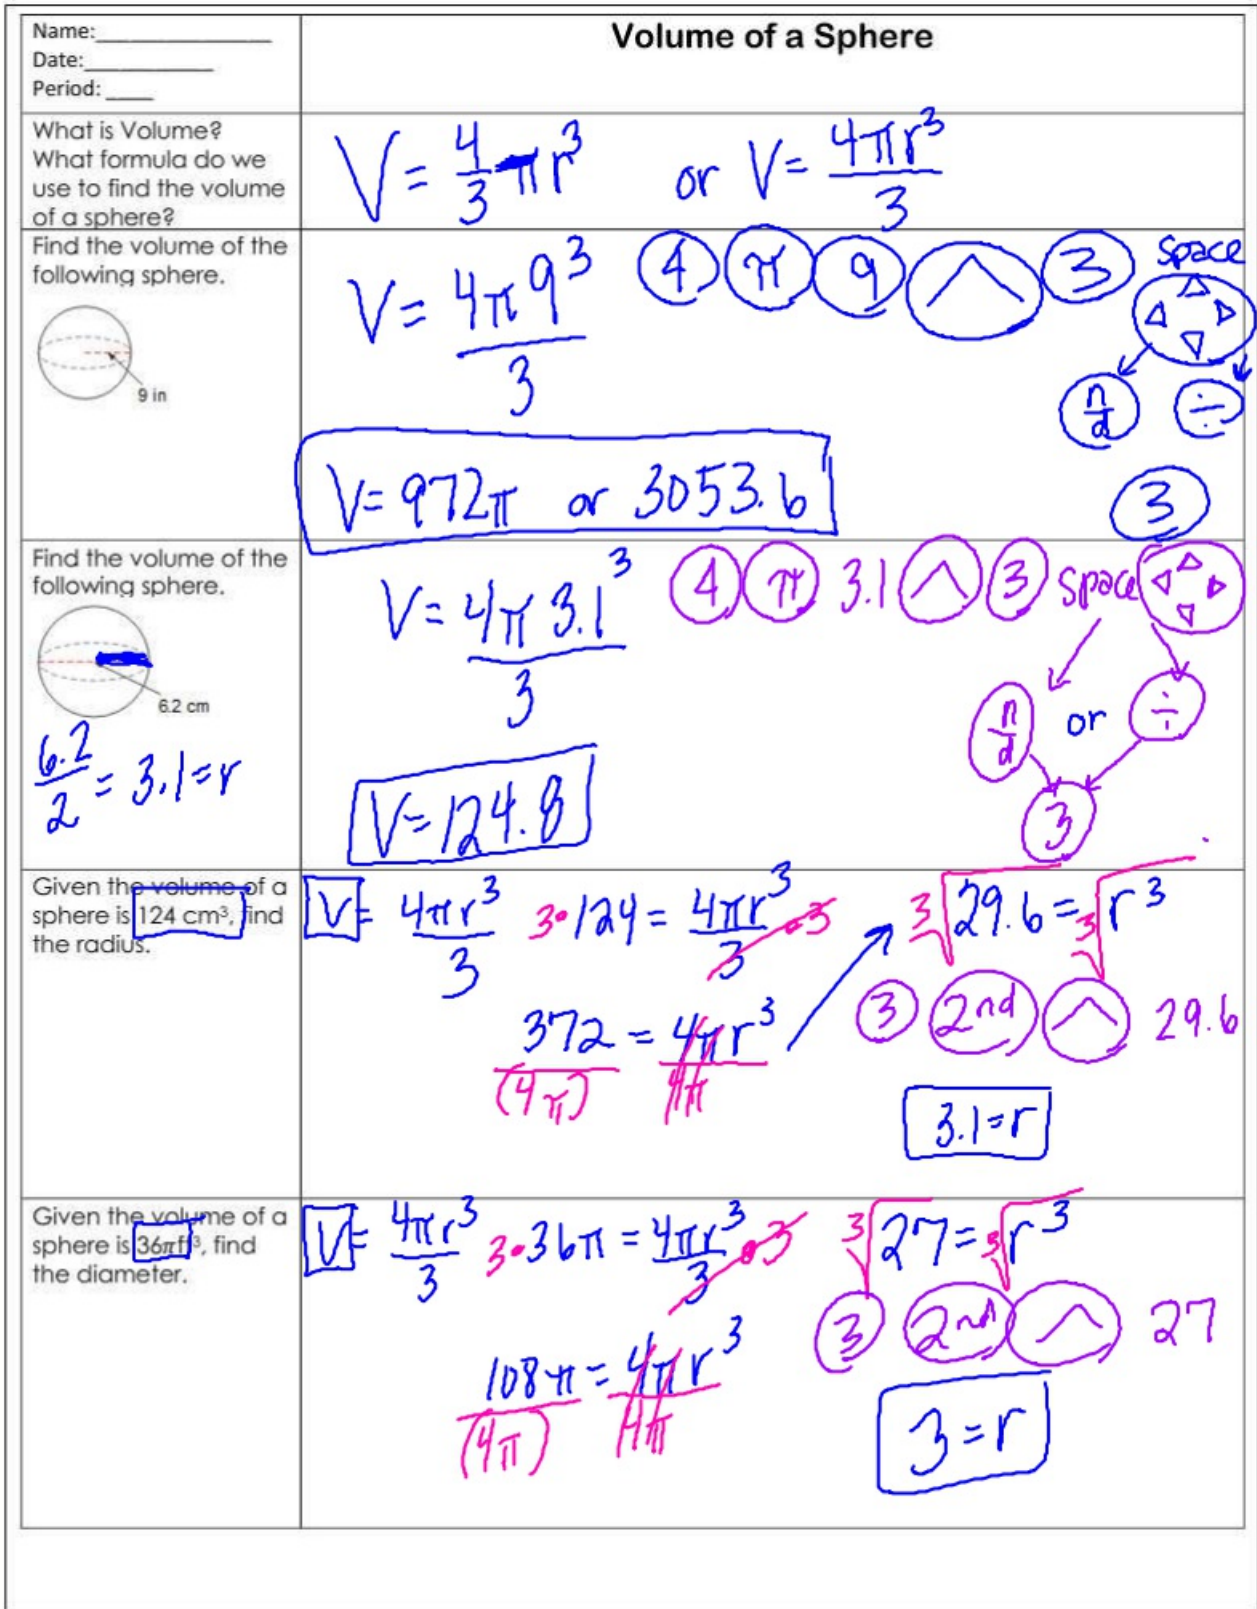 Name:
Date:
Period:
Volume of a Sphere
What is Volume?
What formula do we
use to find the volume
of a sphere?
V = 4/3 πr³ or V = 4πr³/3
Find the volume of the
following sphere.
9 in
V = 4π9³/3
4 π 9 ^ 3 Space
n/d ÷
3
V = 972π or 3053.6
Find the volume of the
following sphere.
6.2 cm
6.2/2 = 3.1 = r
V = 4π 3.1³/3
4 π 3.1 ^ 3 Space
n/d or ÷
3
V = 124.8
Given the volume of a
sphere is 124 cm³, find
the radius.
V = 4πr³/3
3·124 = 4πr³/3 ·3
372 = 4πr³
(4π) 4π
³√29.6 = ³√r³
3 2nd ^ 29.6
3.1 = r
Given the volume of a
sphere is 36πft³, find
the diameter.
V = 4πr³/3
3·36π = 4πr³/3 ·3
108π = 4πr³
(4π) 4π
³√27 = ³√r³
3 2nd ^ 27
3 = r